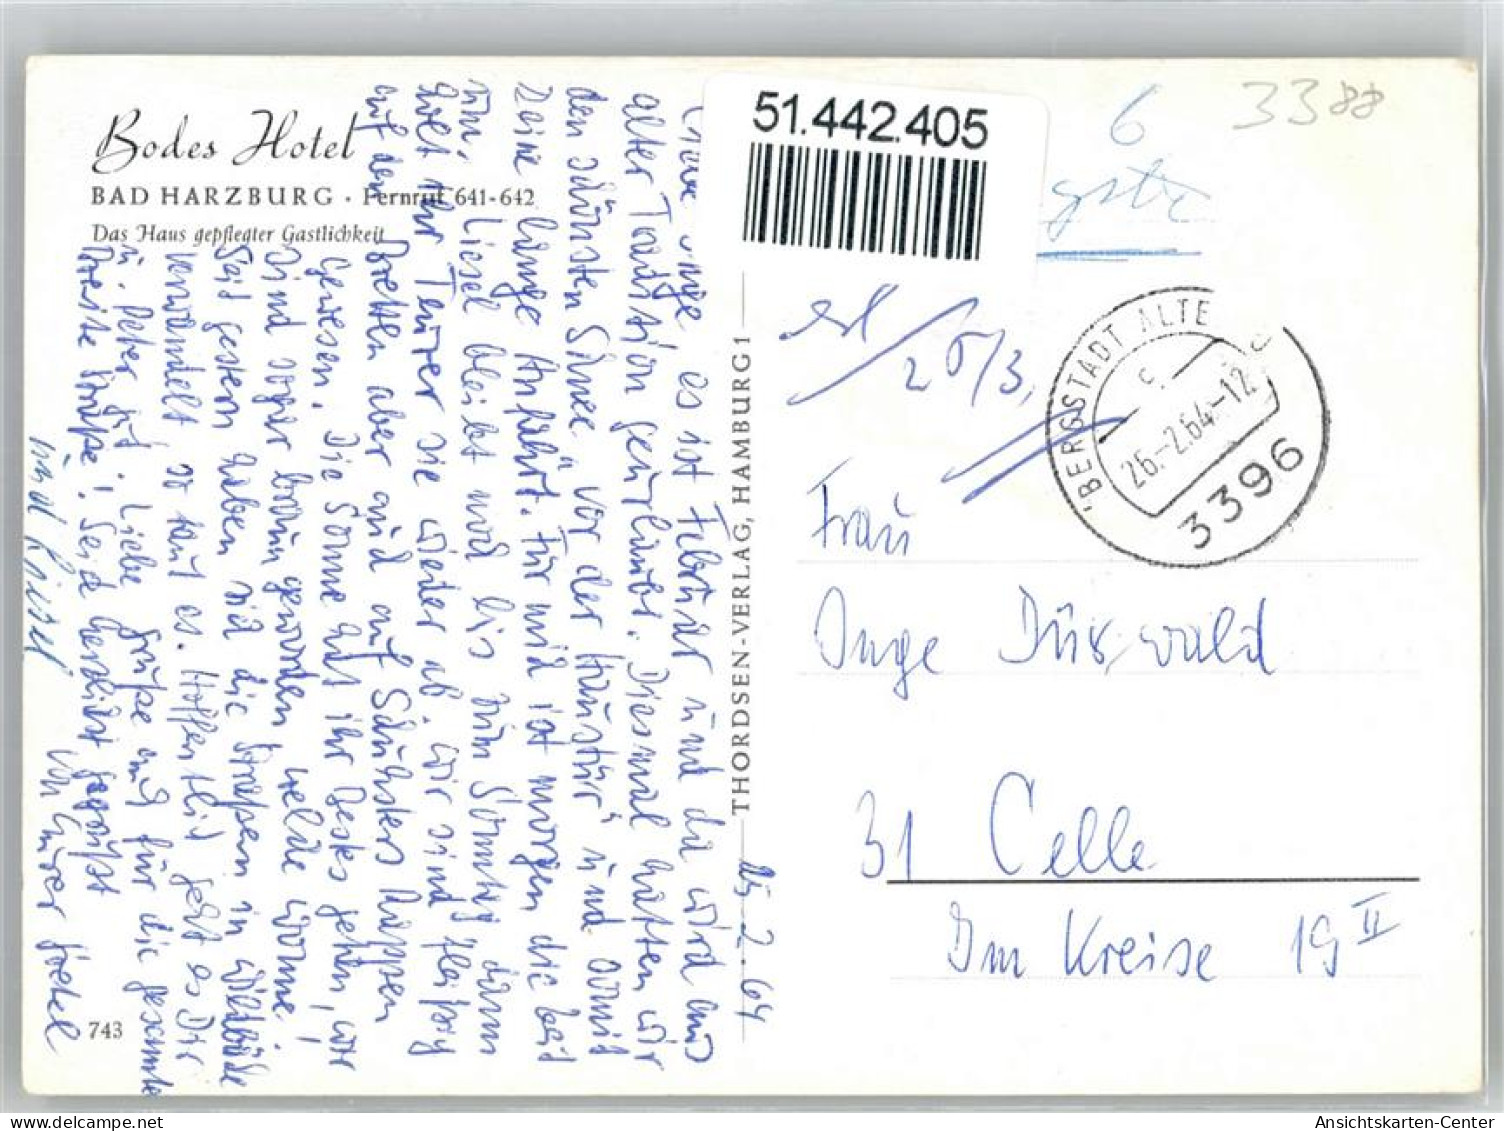 Bodes Hotel
BAD HARZBURG · Fernruf 641-642
Das Haus gepflegter Gastlichkeit
Inge, es ist Februar und da wird aus
alter Tradition geurlaubt. Diesmal hatten wir
den schönsten Schnee "vor der Haustür" und somit
keine lange Anfahrt. Für mich ist morgen die Zeit
um, Liesel bleibt noch bis zum Sonntag dann
holt Ihr Teurer sie wieder ab. Wir sind fleißig
auf den Bretten aber auch auf Schusters Rappen
gewesen. Die Sonne hat ihr Bestes getan, wir
sind sogar braun geworden, welche Wonne!
Seit gestern haben sich die Straßen in
verwandelt so taut es. Hoffentlich geht es Dir
u. Peter gut. Liebe Grüße auch für die gesamte
Breite Straße! Seid herzlichst gegrüßt
von Eurer
und Liesel
25.2.64
THORDSEN-VERLAG, HAMBURG 1
743
51.442.405
6
3388
26/3.
BERGSTADT ALTE
26.-2.64-12
c
3396
Frau
Inge Düswald
31 Celle
Im Kreise 19 II
Ansichtskarten-Center